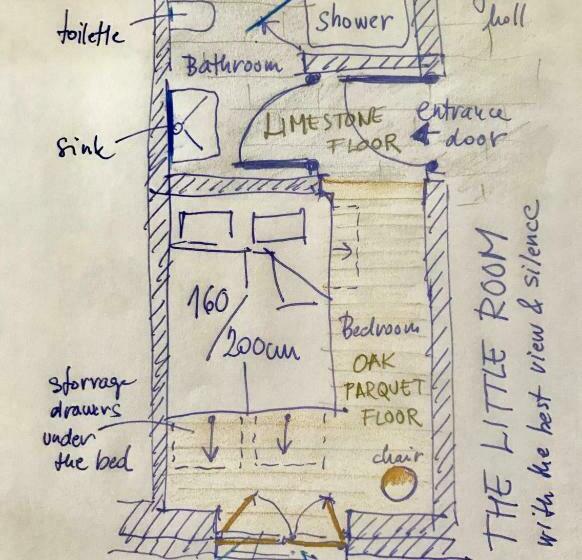 toilette
shower
holl
Bathroom
sink
LIMESTONE
FLOOR
entrance
door
160
/200cm
Bedroom
OAK
PARQUET
FLOOR
storrage
drawers
under
the bed
chair
THE LITTLE ROOM
with the best view & silence